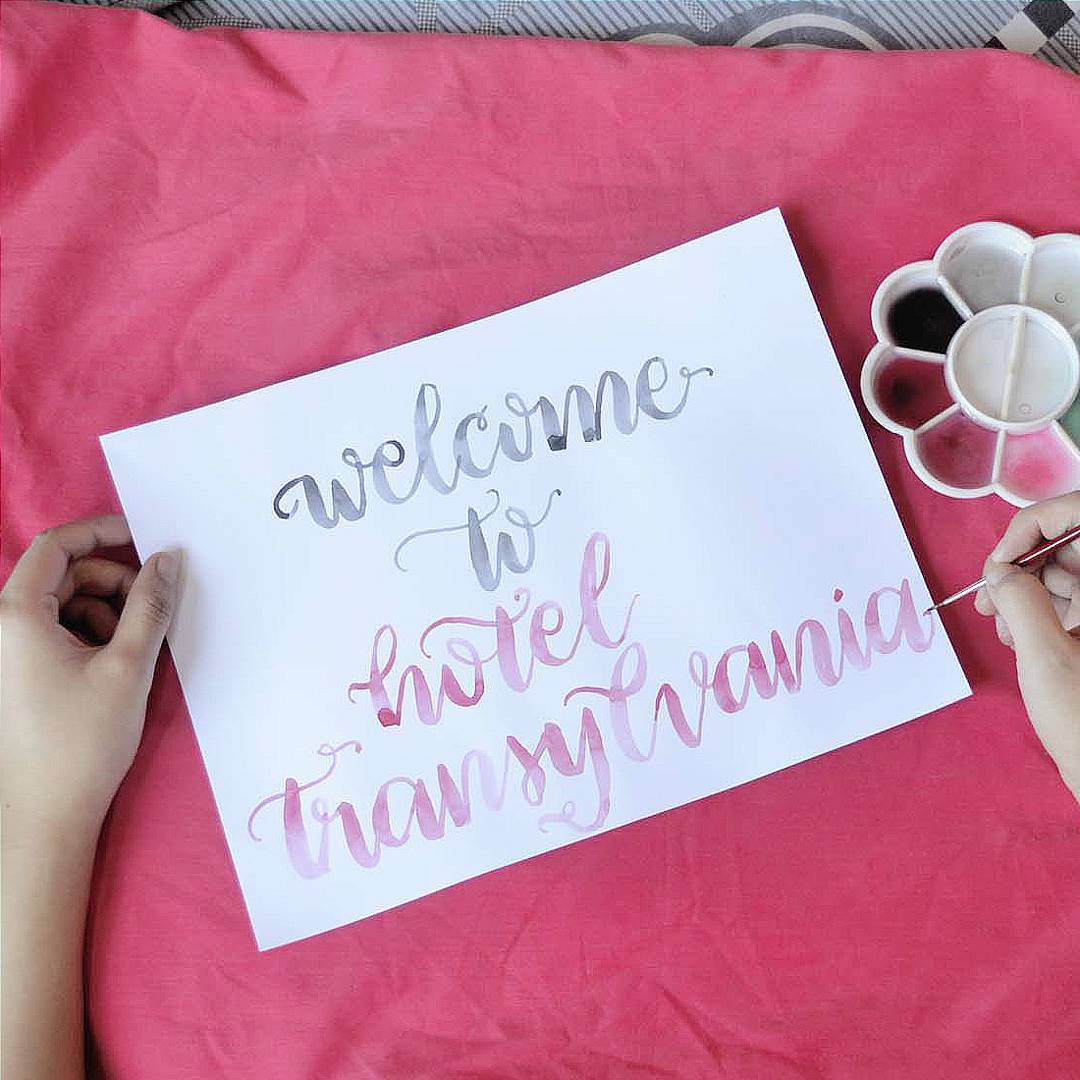 welcome
to
hotel
transylvania